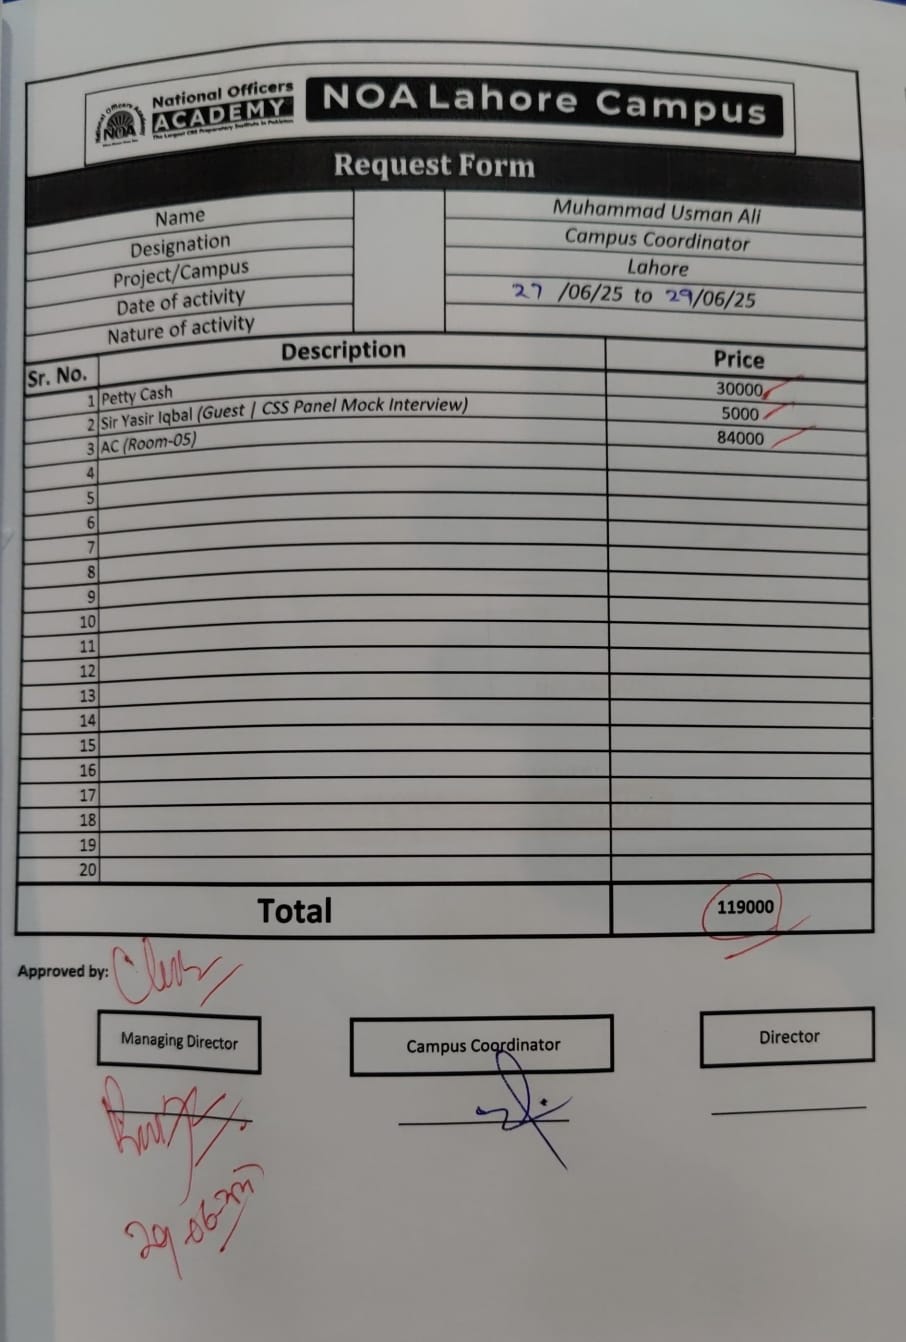 National Officers
ACADEMY
The Largest CSS Preparatory Institute in Pakistan
NOA
NOA Lahore Campus
Request Form
Name Muhammad Usman Ali
Designation Campus Coordinator
Project/Campus Lahore
Date of activity 27 /06/25 to 29/06/25
Nature of activity
Sr. No. Description Price
1 Petty Cash 30000
2 Sir Yasir Iqbal (Guest | CSS Panel Mock Interview) 5000
3 AC (Room-05) 84000
4
5
6
7
8
9
10
11
12
13
14
15
16
17
18
19
20
Total 119000
Approved by:
Managing Director Campus Coordinator Director